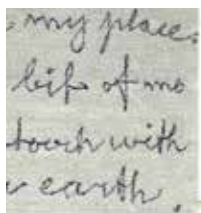 my place.
of mo
touch with
earth.